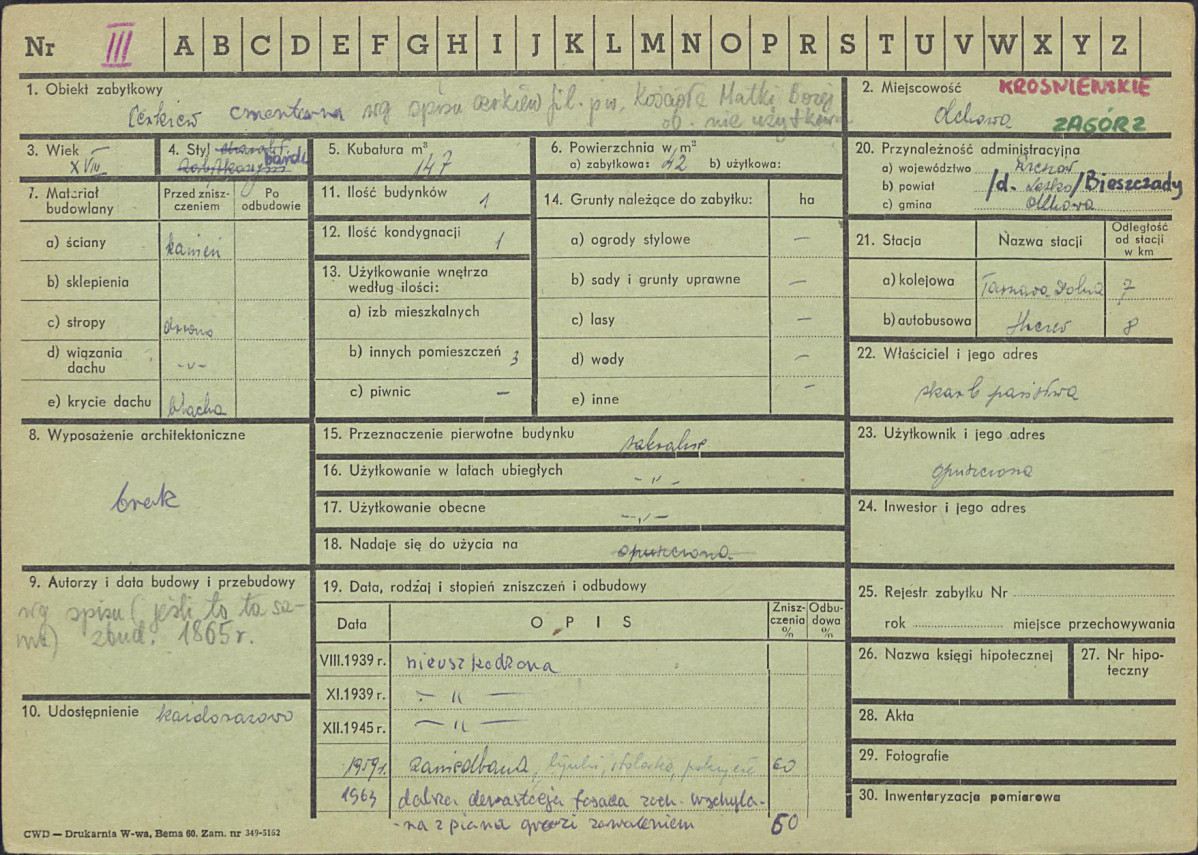 Nr III A B C D E F G H I J K L M N O P R S T U V W X Y Z
1. Obiekt zabytkowy
Cerkiew cmentarna wg spisu cerkiew fil. pw. Matki Bożej
ob. nie użytkow
2. Miejscowość KROŚNIEŃSKIE
Olchowa
ZAGÓRZ
3. Wiek
XVIII
4. Styl
5. Kubatura m³
147
6. Powierzchnia w m²
a) zabytkowa: 42 b) użytkowa:
7. Materiał budowlany
Przed znisz-
czeniem
Po
odbudowie
a) ściany kamień
b) sklepienia
c) stropy drewno
d) wiązania
dachu -〃-
e) krycie dachu blacha
8. Wyposażenie architektoniczne
brak
9. Autorzy i data budowy i przebudowy
wg spisu (jeśli to ta sa-
ma) zbud. 1865 r.
10. Udostępnienie każdorazowo
11. Ilość budynków 1
12. Ilość kondygnacji 1
13. Użytkowanie wnętrza
według ilości:
a) izb mieszkalnych
b) innych pomieszczeń 3
c) piwnic —
14. Grunty należące do zabytku: ha
a) ogrody stylowe —
b) sady i grunty uprawne —
c) lasy —
d) wody —
e) inne —
15. Przeznaczenie pierwotne budynku sakralne
16. Użytkowanie w latach ubiegłych -〃-
17. Użytkowanie obecne -〃-
18. Nadaje się do użycia na opuszczona
19. Data, rodzaj i stopień zniszczeń i odbudowy
Data OPIS Znisz-
czenia
% Odbu-
dowa
%
VIII.1939 r. nieuszkodzona
XI.1939 r. — 〃 —
XII.1945 r. — 〃 —
1959 r. zaniedbana, tynki, stolarka, pokrycie 60
1963 dalsza dewastacja fasada zach. wychyla-
-na z pionu grozi zawaleniem 60
20. Przynależność administracyjna
a) województwo Rzeszów
b) powiat /d. Lesko/Bieszczady
c) gmina Olchowa
21. Stacja Nazwa stacji Odległość
od stacji
w km
a) kolejowa Tarnawa Dolna 7
b) autobusowa 8
22. Właściciel i jego adres
skarb państwa
23. Użytkownik i jego adres
opuszczona
24. Inwestor i jego adres
25. Rejestr zabytku Nr
rok miejsce przechowywania
26. Nazwa księgi hipotecznej
27. Nr hipo-
teczny
28. Akta
29. Fotografie
30. Inwentaryzacja pomiarowa
CWD — Drukarnia W-wa, Bema 60. Zam. nr 349-5162